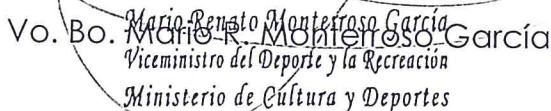 Mario Renato Monterroso García
Vo. Bo. Mario R. Monterroso García
Viceministro del Deporte y la Recreación
Ministerio de Cultura y Deportes